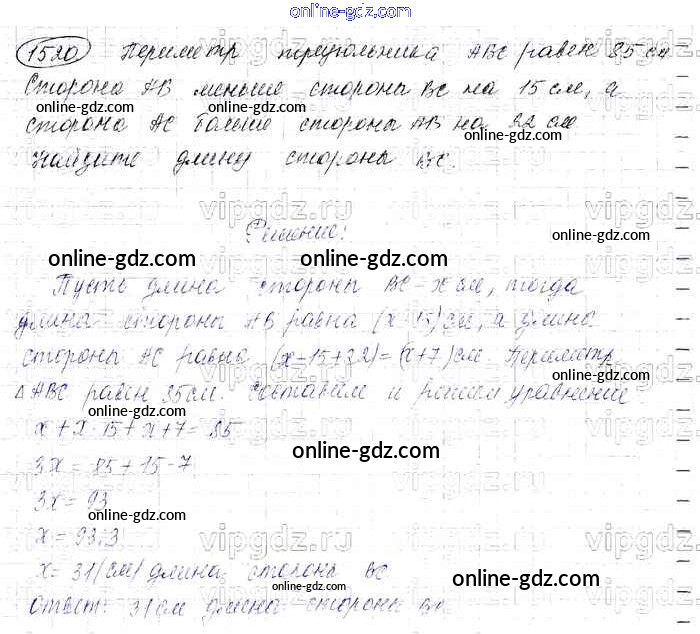 online-gdz.com
1520 Периметр треугольника ABC равен 85 см
Сторона AB меньше стороны BC на 15 см, а
online-gdz.com
online-gdz.com
сторона AC больше стороны AB на 22 см
online-gdz.com
Найдите длину стороны BC.
online-gdz.com
vipgdz.ru vipgdz.ru vipgdz.ru
Решение:
online-gdz.com
online-gdz.com online-gdz.com
Пусть длина стороны BC - x см, тогда
длина стороны AB равна (x-15) см, а длина
стороны AC равна (x-15+22)=(x+7) см Периметр
online-gdz.com
△ABC равен 85 см. Составим и решим уравнение
online-gdz.com
x+x-15+x+7=85
online-gdz.com
3x=85+15-7
3x=93
online-gdz.com
x=93:3
vipgdz.ru vipgdz.ru vipgdz.ru
online-gdz.com
x=31(см) длина сторона BC
online-gdz.com
Ответ: 31 см длина сторона BC
online-gdz.com